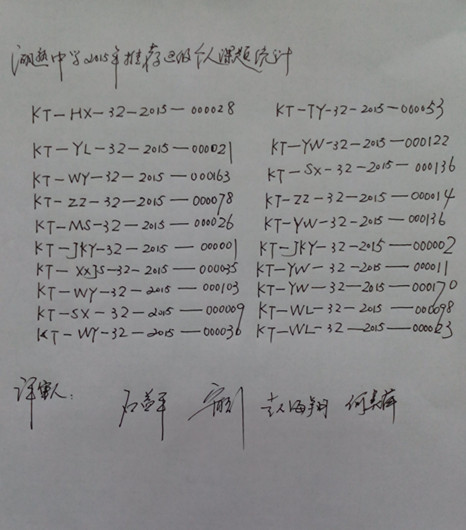 湖熟中学2015年推荐区的个人课题统计
KT-HX-32-2015-000028
KT-TY-32-2015-000053
KT-YL-32-2015-000021
KT-YW-32-2015-000122
KT-WY-32-2015-000163
KT-SX-32-2015-000136
KT-ZZ-32-2015-000078
KT-ZZ-32-2015-000014
KT-MS-32-2015-000026
KT-YW-32-2015-000136
KT-JKY-32-2015-000001
KT-JKY-32-2015-000002
KT-XXJS-32-2015-000035
KT-YW-32-2015-000011
KT-WY-32-2015-000103
KT-YW-32-2015-000170
KT-SX-32-2015-000009
KT-WL-32-2015-000098
KT-WY-32-2015-000036
KT-WL-32-2015-000023
评审人: